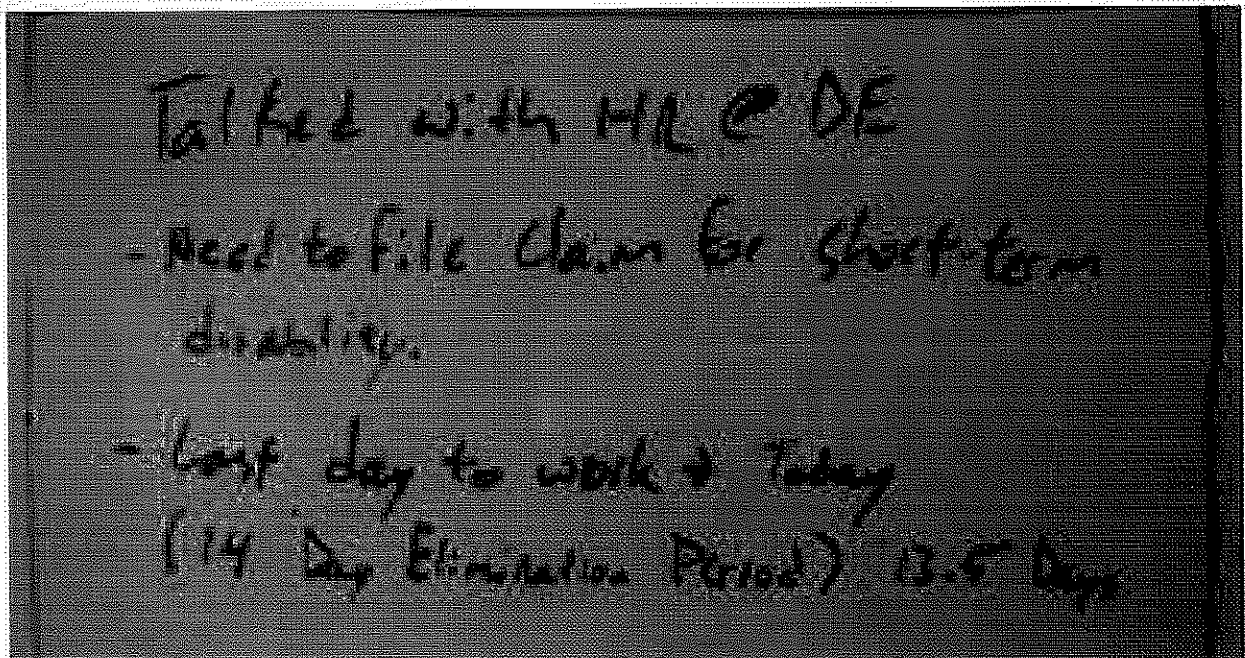 Talked with HR @ DE
- Need to File Claim for Short-term
disability.
- Last day to work → Today
(14 Day Elimination Period) 13.5 Days